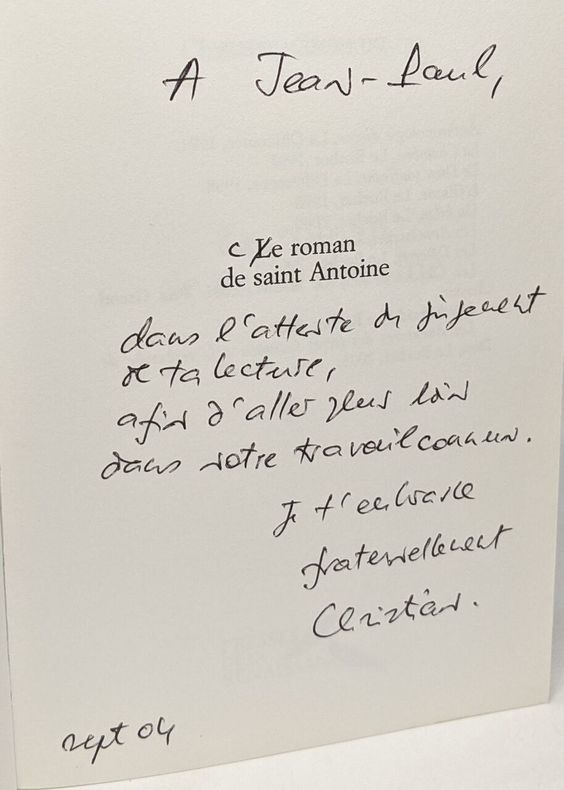 A Jean-Paul,
ce roman
de saint Antoine
dans l'attente du jugement
de ta lecture,
afin d'aller plus loin
dans notre travail commun.
Je t'embrasse
fraternellement
Christian.
sept 04